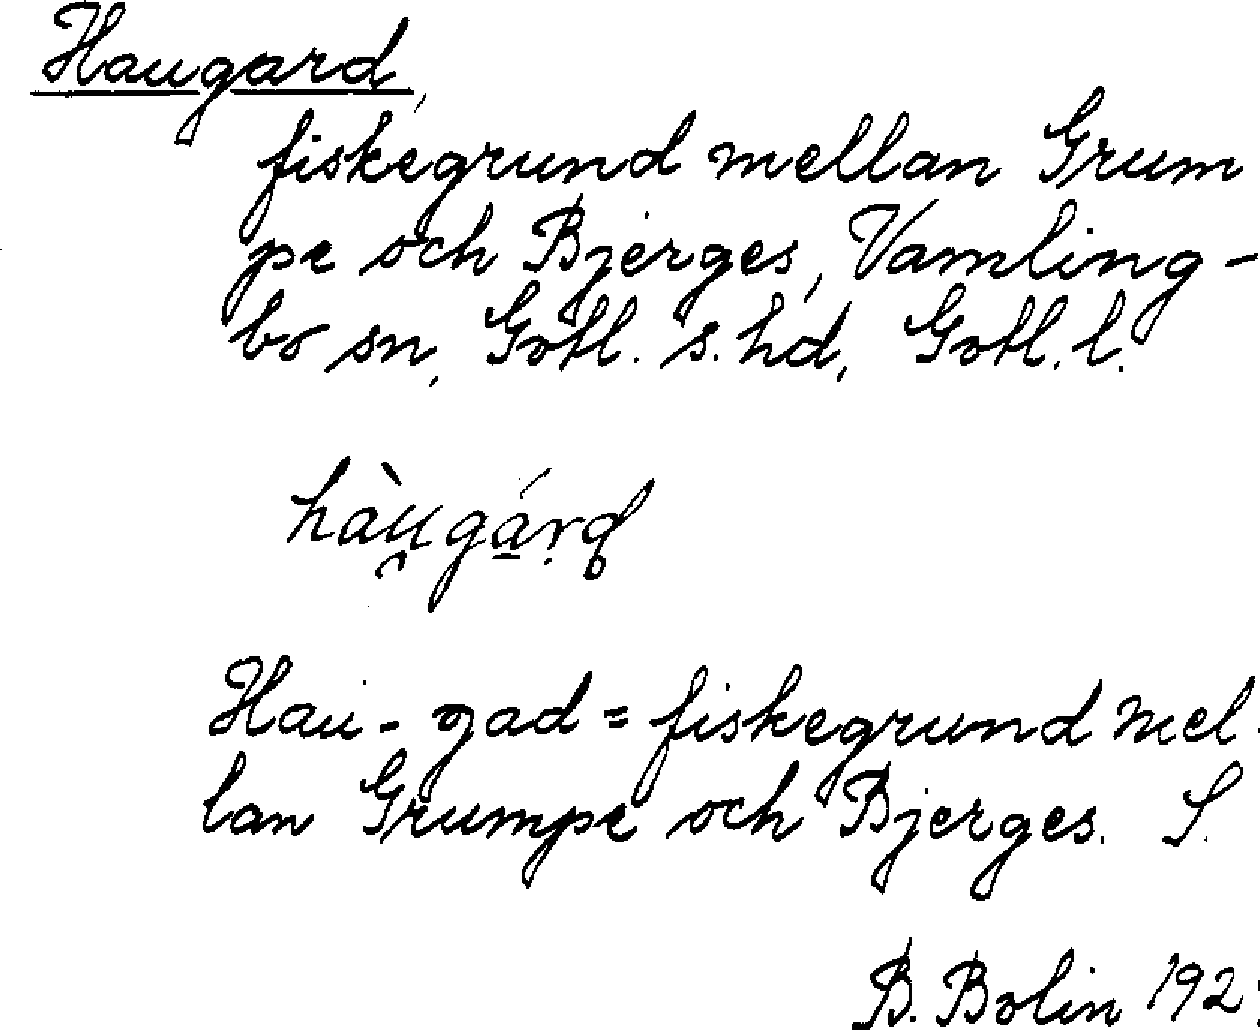 Haugard,
fiskegrund mellan Grum
pe och Bjerges, Vamling-
bo sn, Gotl. s. hd, Gotl. l.
hàu̯gá̱ṛɖ
Hau-gad = fiskegrund mel-
lan Grumpe och Bjerges. S.
B. Bolin 192